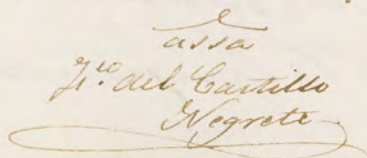 assa
F.co del Castillo
Negrete